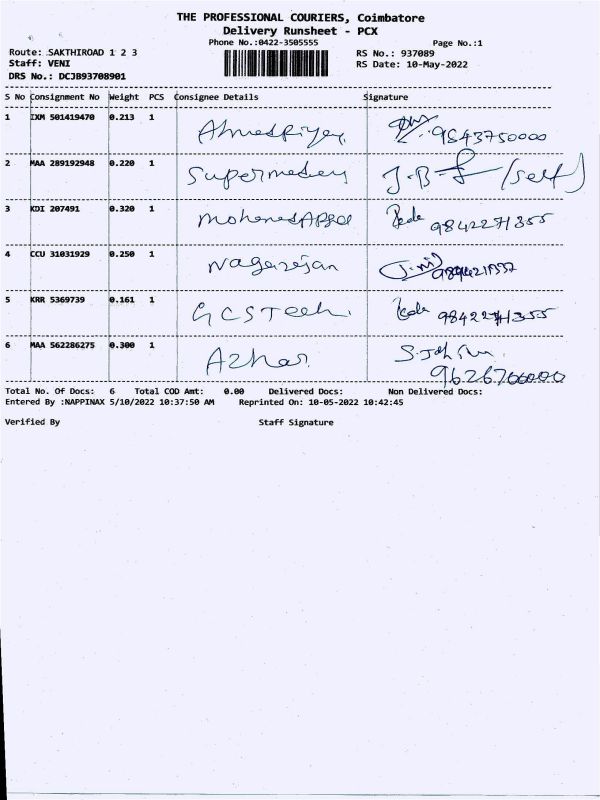 THE PROFESSIONAL COURIERS, Coimbatore
Delivery Runsheet - PCX
Phone No.:0422-3505555 Page No.:1
Route: SAKTHIROAD 1 2 3 RS No.: 937089
Staff: VENI RS Date: 10-May-2022
DRS No.: DCJB93708901
S No Consignment No Weight PCS Consignee Details Signature
1 IXM 501419470 0.213 1 9543750000
2 MAA 289192948 0.220 1 J-B- (self)
3 KDI 207491 0.320 1 9842271355
4 CCU 31031929 0.250 1 Nagarajan
5 KRR 5369739 0.161 1 GCS Tech 9842271355
6 MAA 562286275 0.300 1 Azhar 9626706000
Total No. Of Docs: 6 Total COD Amt: 0.00 Delivered Docs: Non Delivered Docs:
Entered By :NAPPINAX 5/10/2022 10:37:50 AM Reprinted On: 10-05-2022 10:42:45
Verified By Staff Signature